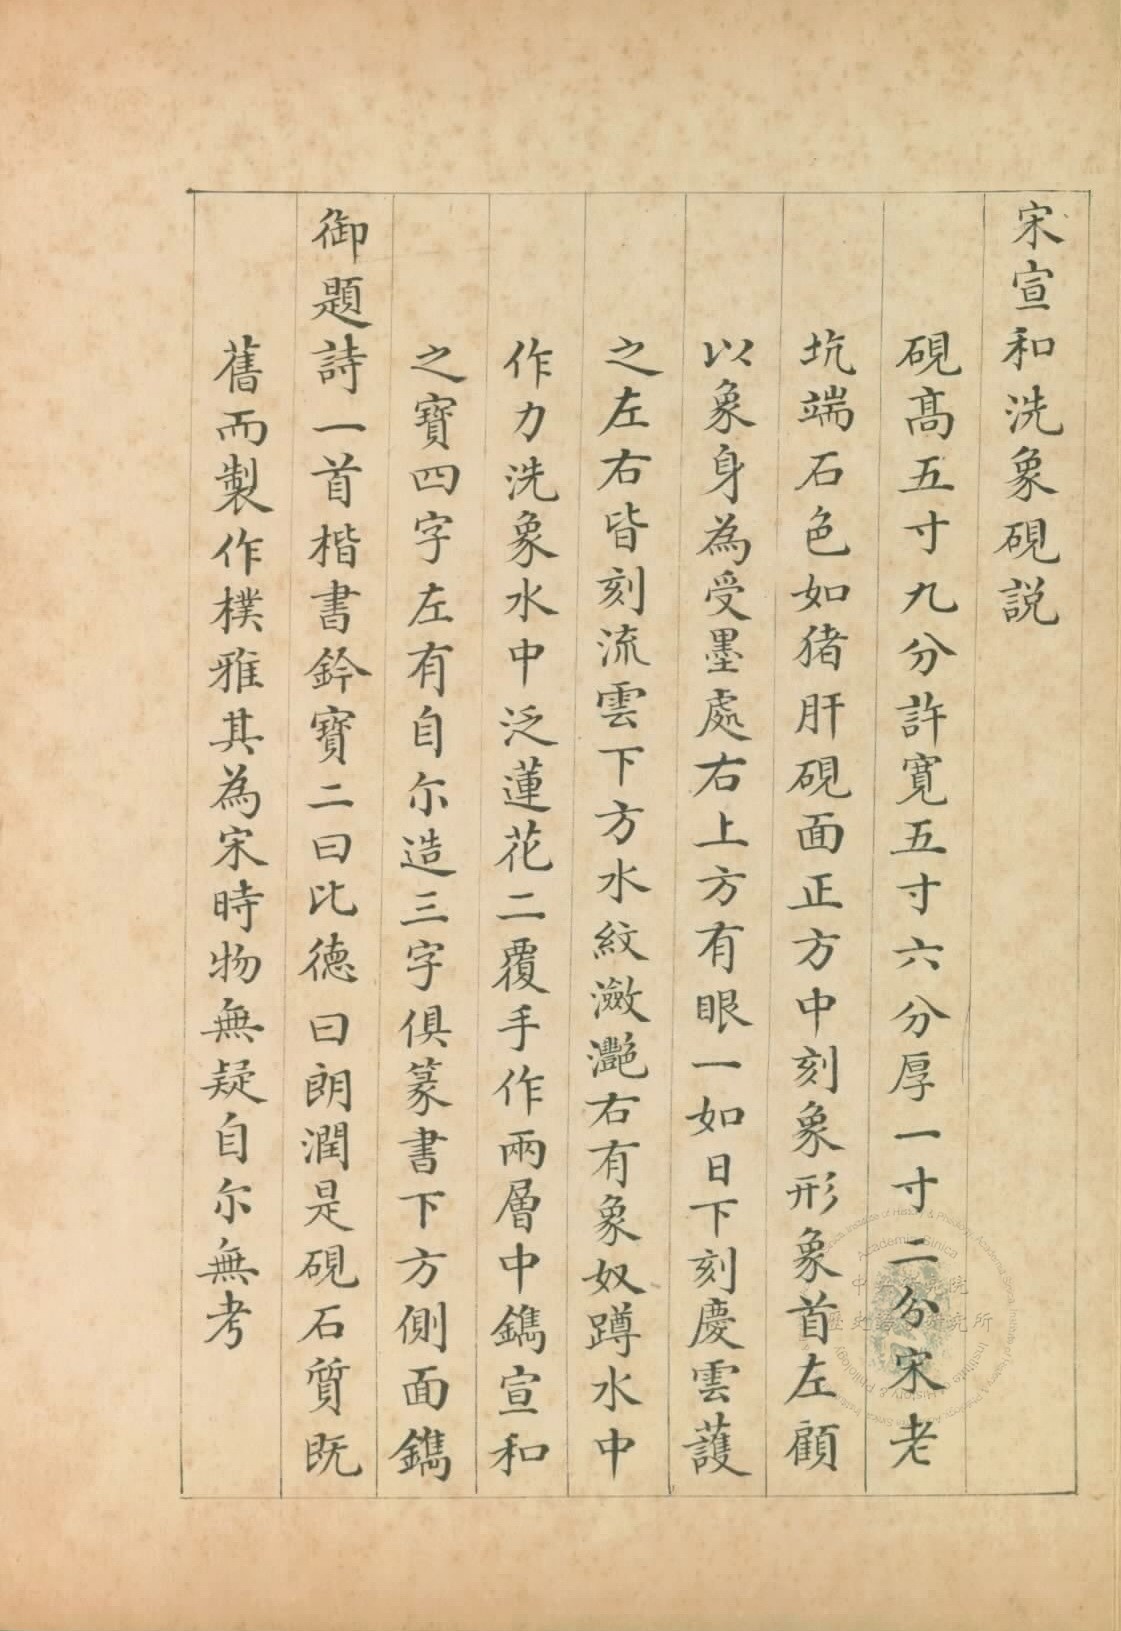 宋宣和洗象硯説
硯髙五寸九分許寛五寸六分厚一寸二分宋老
坑端石色如猪肝硯面正方中刻象形象首左顧
以象身為受墨處右上方有眼一如日下刻慶雲䕶
之左右皆刻流雲下方水紋瀲灔右有象奴蹲水中
作力洗象水中泛蓮花二覆手作兩層中鐫宣和
之寶四字左有自尓造三字俱篆書下方側面鐫
御題詩一首楷書鈐寶二曰比德曰朗潤是硯石質既
舊而製作樸雅其為宋時物無疑自尓無考
中央研究院
歷史語言研究所
Academia Sinica